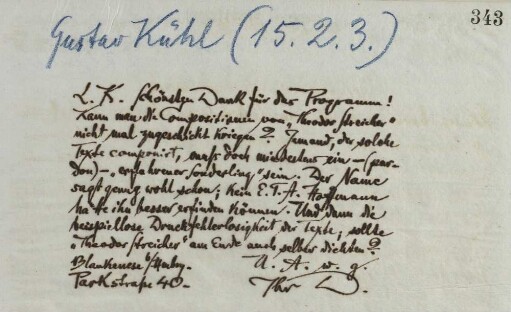 343
Gustav Kühl (15. 2. 3.)
L. K. Schönsten Dank für das Programm!
Kann man die Compositionen von „Theodor Streicher"
nicht mal zugeschickt kriegen? Jemand, der solche
Texte componirt, muß doch mindestens ein – (par-
don) –, erfahrener Sonderling" sein. Der Name
sagt genug wohl schon; kein E. T. A. Hoffmann
hätte ihn besser erfinden können. Und dann die
beispiellose Druckfehlerlosigkeit der Texte; sollte
„Theodor Streicher" am Ende auch selber dichten?
Blankenese b/Hambg. U. A. w. g.
Parkstraße 40. Ihr D.